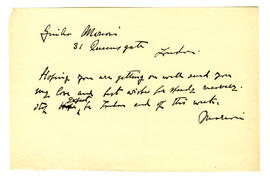 31 Queensgate
London.
Hoping you are getting on well send you
my love and best wishes for speedy recovery.
expect
to London end of this week.